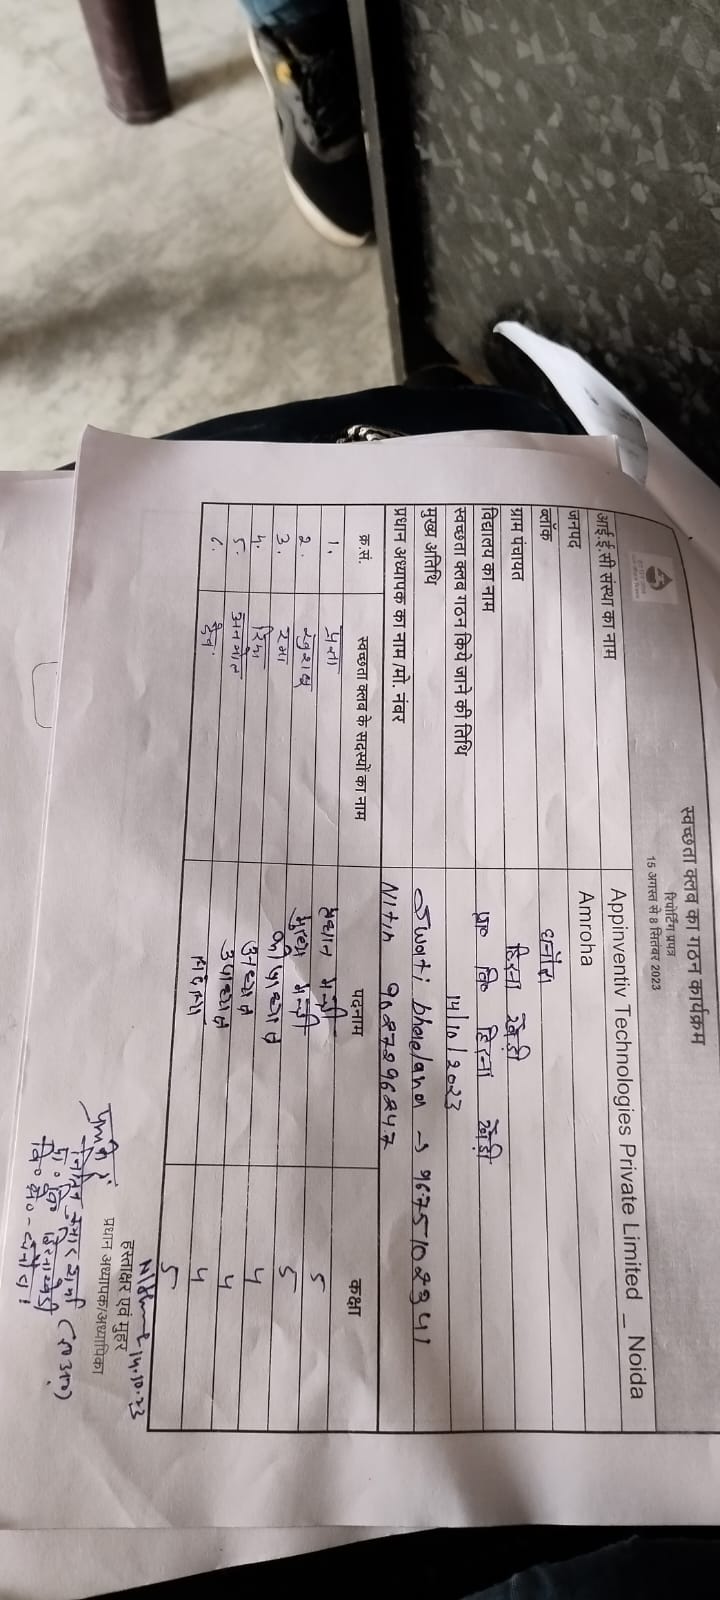 स्वच्छता क्लब का गठन कार्यक्रम
रिपोर्टिंग प्रपत्र
15 अगस्त से 8 सितंबर 2023
आई.ई.सी संस्था का नाम Appinventiv Technologies Private Limited _ Noida
जनपद Amroha
ब्लॉक धनौरा
ग्राम पंचायत हिरना खेड़ी
विद्यालय का नाम प्रा० वि० हिरना खेड़ी
स्वच्छता क्लब गठन किये जाने की तिथि 14/10/2023
मुख्य अतिथि Swati → 9675102341
प्रधान अध्यापक का नाम /मो. नंबर Nitin
क्र.सं. स्वच्छता क्लब के सदस्यों का नाम पदनाम कक्षा
1. प्रधान मन्त्री 5
2. मन्त्री 5
3. रमा कोषाध्यक्ष 4
4. रिया 4
5. अनमोल 4
6. सदस्य 5
14.10.23
हस्ताक्षर एवं मुहर
प्रधान अध्यापक/अध्यापिका